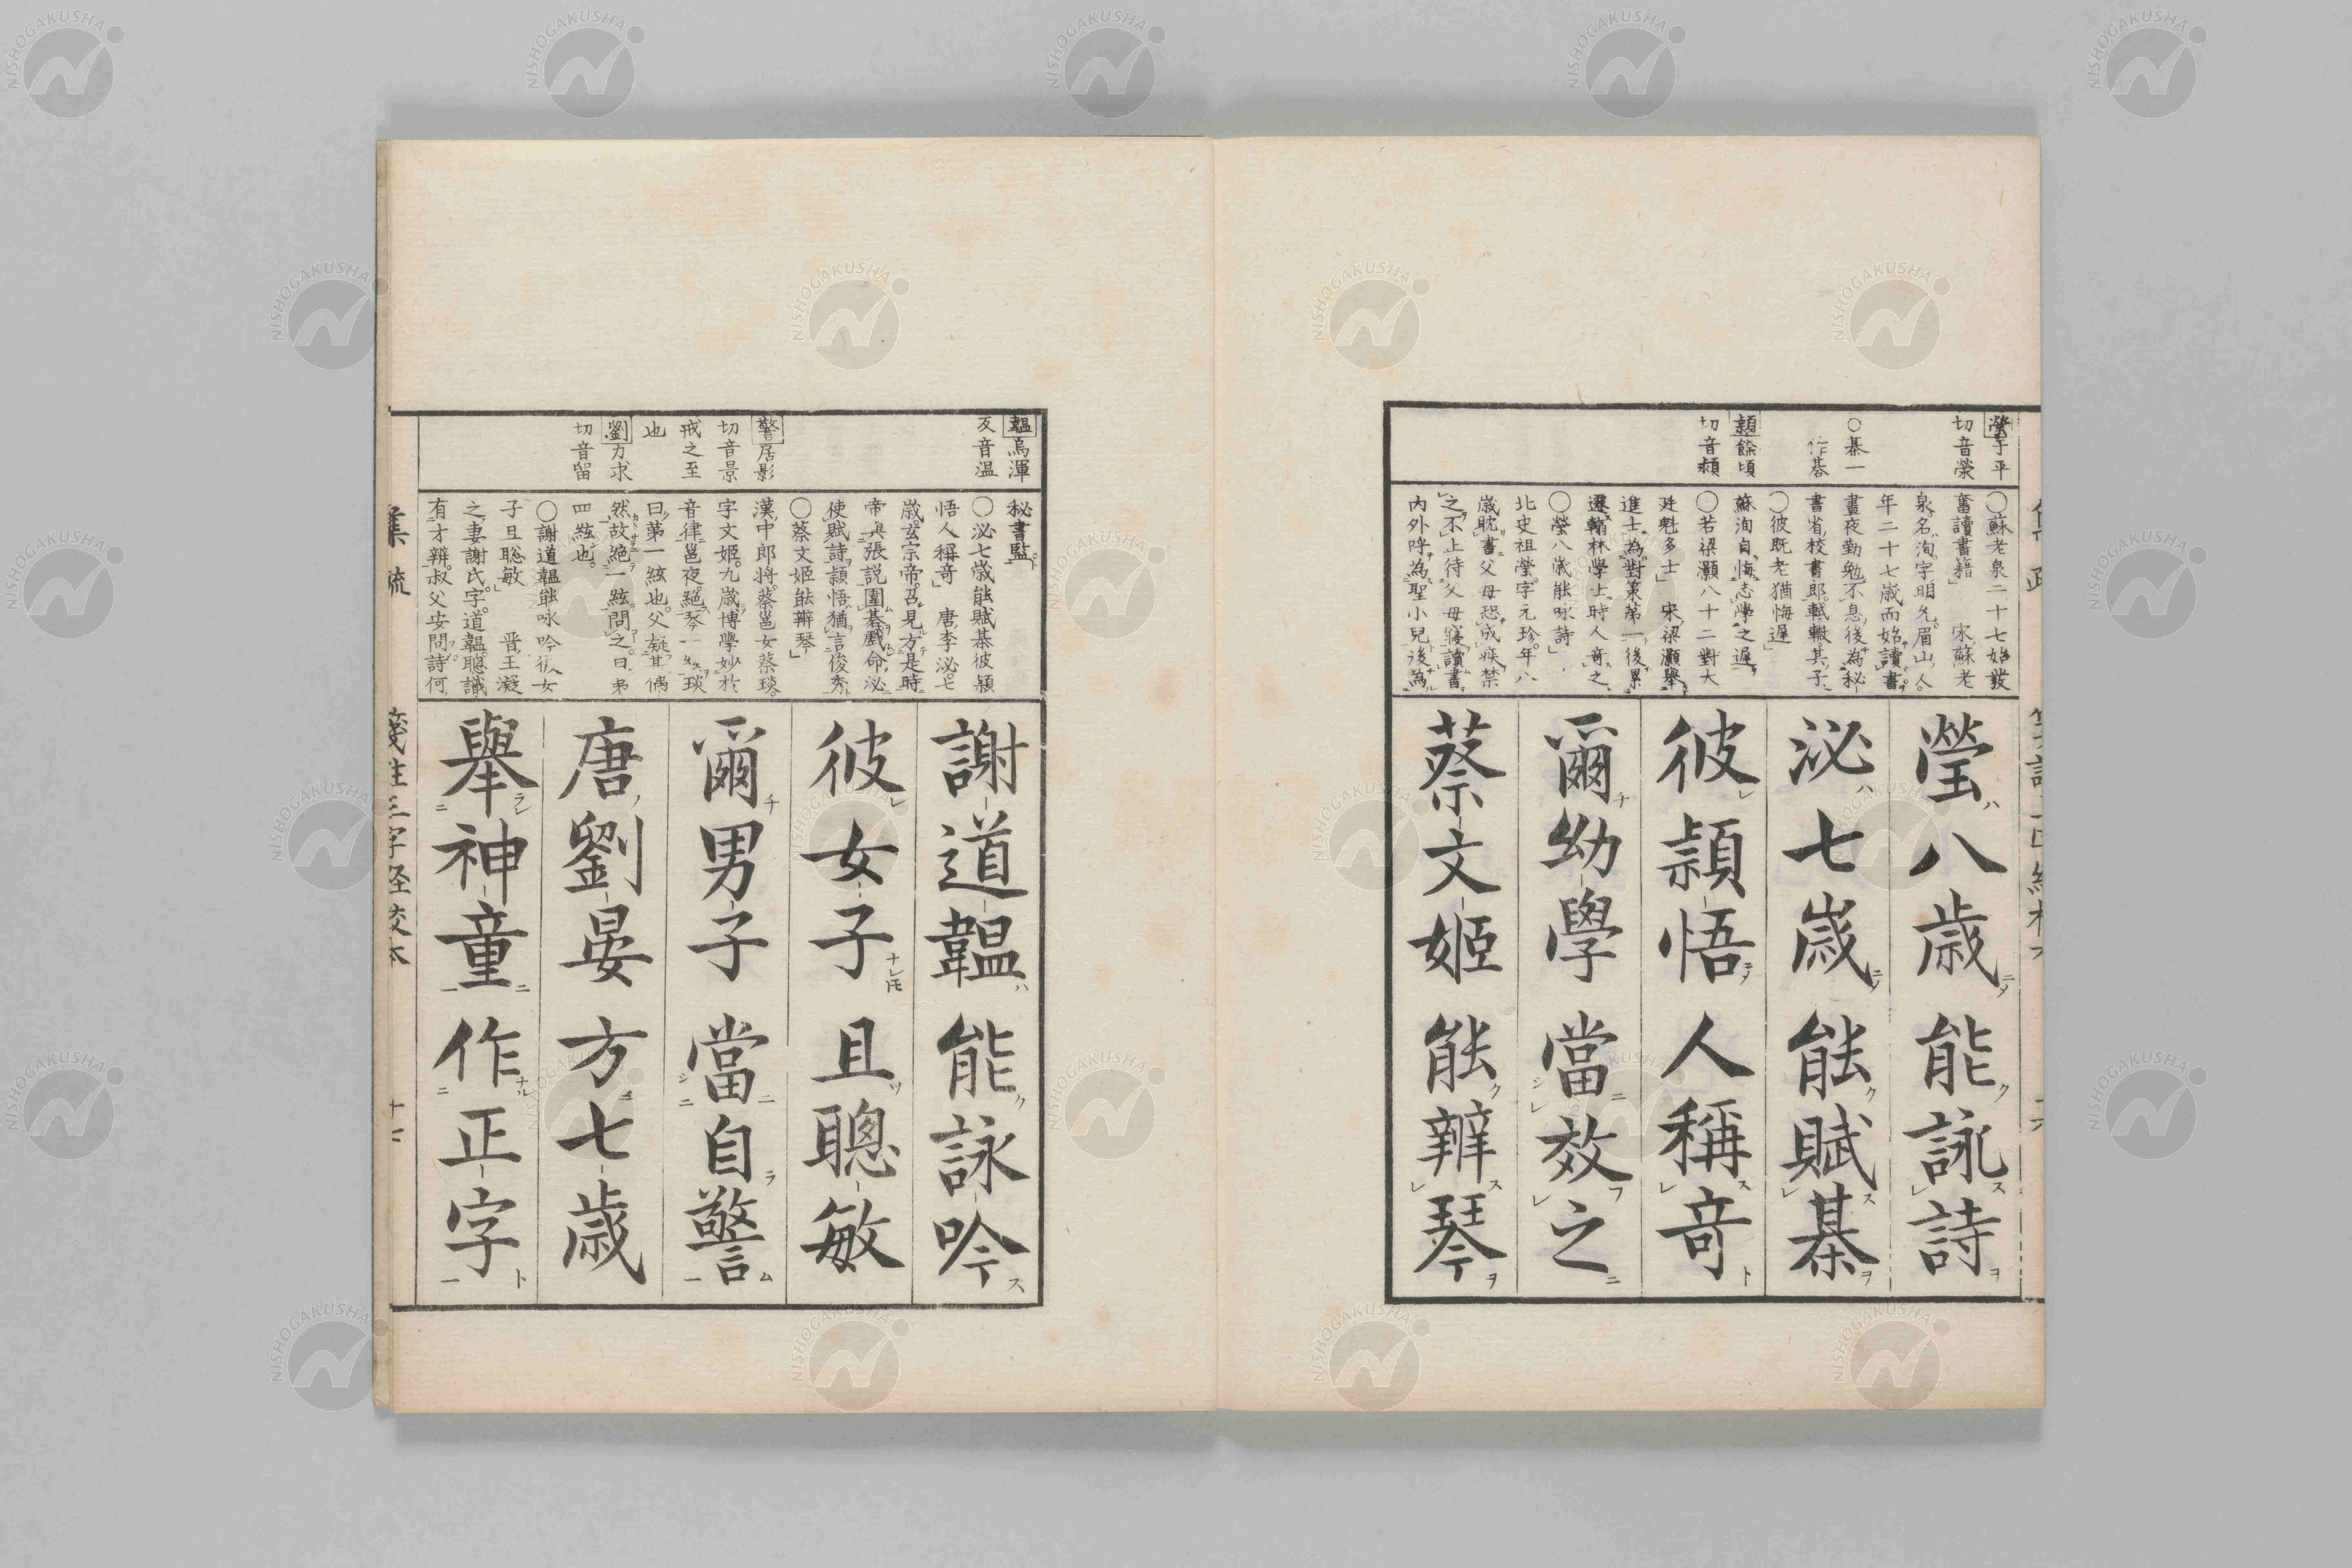 瑩于平
切音榮
○棊一
作碁
頴餘頃
切音潁
○蘇老泉二十七始發
奮讀書籍」 宋蘇老
泉名洵字明允眉山人
年二十七歲而始讀書
晝夜勤勉不息後為秘
書省校書郎軾轍其子
○彼既老猶悔遲」
蘇洵自悔志學之遲
○若梁灝八十二對大
廷魁多士」 宋梁灝舉
進士為對策第一後累
遷翰林學士時人奇之
○瑩八歲能咏詩」
北史祖瑩字元珍年八
歲耽書父母恐成疾禁
之不止待父母寢讀書
內外呼為聖小兒後為
瑩ハ八歲ニノ能ク詠スレ詩ヲ
泌ハ七歲ニノ能ク賦スレ棊ヲ
彼レ頴悟ニノ人稱スレ奇ト
爾チ幼學當ニシレ效フレ之ニ
蔡文姬能ク辨スレ琴ヲ
韞烏渾
反音温
警居影
切音景
戒之至
也
劉力求
切音留
秘書監
○泌七歲能賦棊彼頴
悟人稱奇」 唐李泌七
歲玄宗帝召見方是時
帝與張説圍棊戲命泌
使賦詩頴悟猶言俊秀
○蔡文姬能辨琴」
漢中郎將蔡邕女蔡琰
字文姬九歲博學妙於
音律邕夜絕琴一絃琰
曰第一絃也父疑其偶
然故絕一絃問之曰第
四絃也
○謝道韞能咏吟彼女
子且聡敏 晋王凝
之妻謝氏字道韞聰識
有才辨叔父安問詩何
謝道韞ハ能ク詠吟ス
彼レ女子ナレ𪜈且ツ聰敏
爾チ男子當ニシ二自ラ警ム一
唐ノ劉晏方ニ七歲
舉ラレ二神童ニ一作ナル二正字ト一
箋註三字経校本